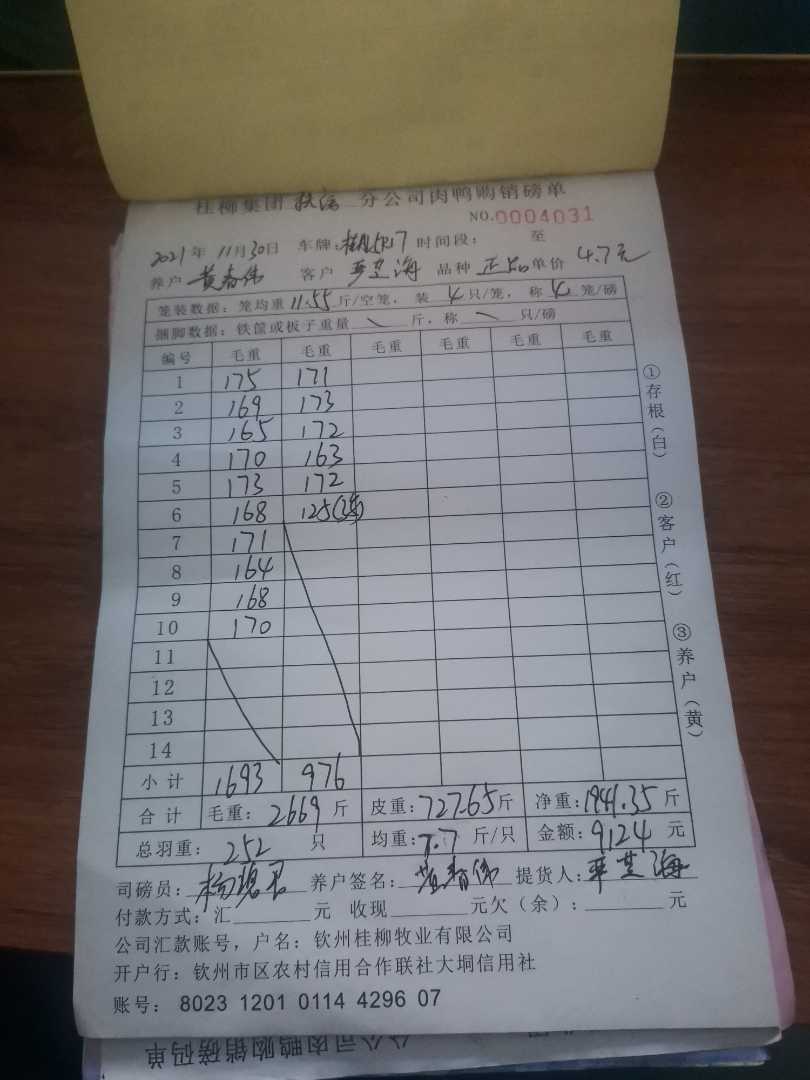 桂柳集团 分公司肉鸭购销磅单
NO.0004031
2021年 11月30日 车牌: 时间段: 至
养户 黄春伟 客户 海 品种 正品 单价 4.7元
笼装数据: 笼均重 11.55 斤/空笼, 装 4 只/笼, 称 4 笼/磅
捆脚数据: 铁筐或板子重量 \ 斤, 称 \ 只/磅
编号 毛重 毛重 毛重 毛重 毛重 毛重
1 175 171
2 169 173
3 165 172
4 170 163
5 173 172
6 168 125
7 171
8 164
9 168
10 170
11
12
13
14
小计 1693 976
合计 毛重: 2669 斤 皮重: 727.65 斤 净重: 1941.35 斤
总羽重: 252 只 均重: 7.7 斤/只 金额: 9124 元
司磅员: 杨 养户签名: 黄春伟 提货人: 海
付款方式: 汇 元 收现 元欠(余): 元
公司汇款账号, 户名: 钦州桂柳牧业有限公司
开户行: 钦州市区农村信用合作联社大垌信用社
账号: 8023 1201 0114 4296 07
①存根(白)
②客户(红)
③养户(黄)
分公司肉鸭购销磅码单